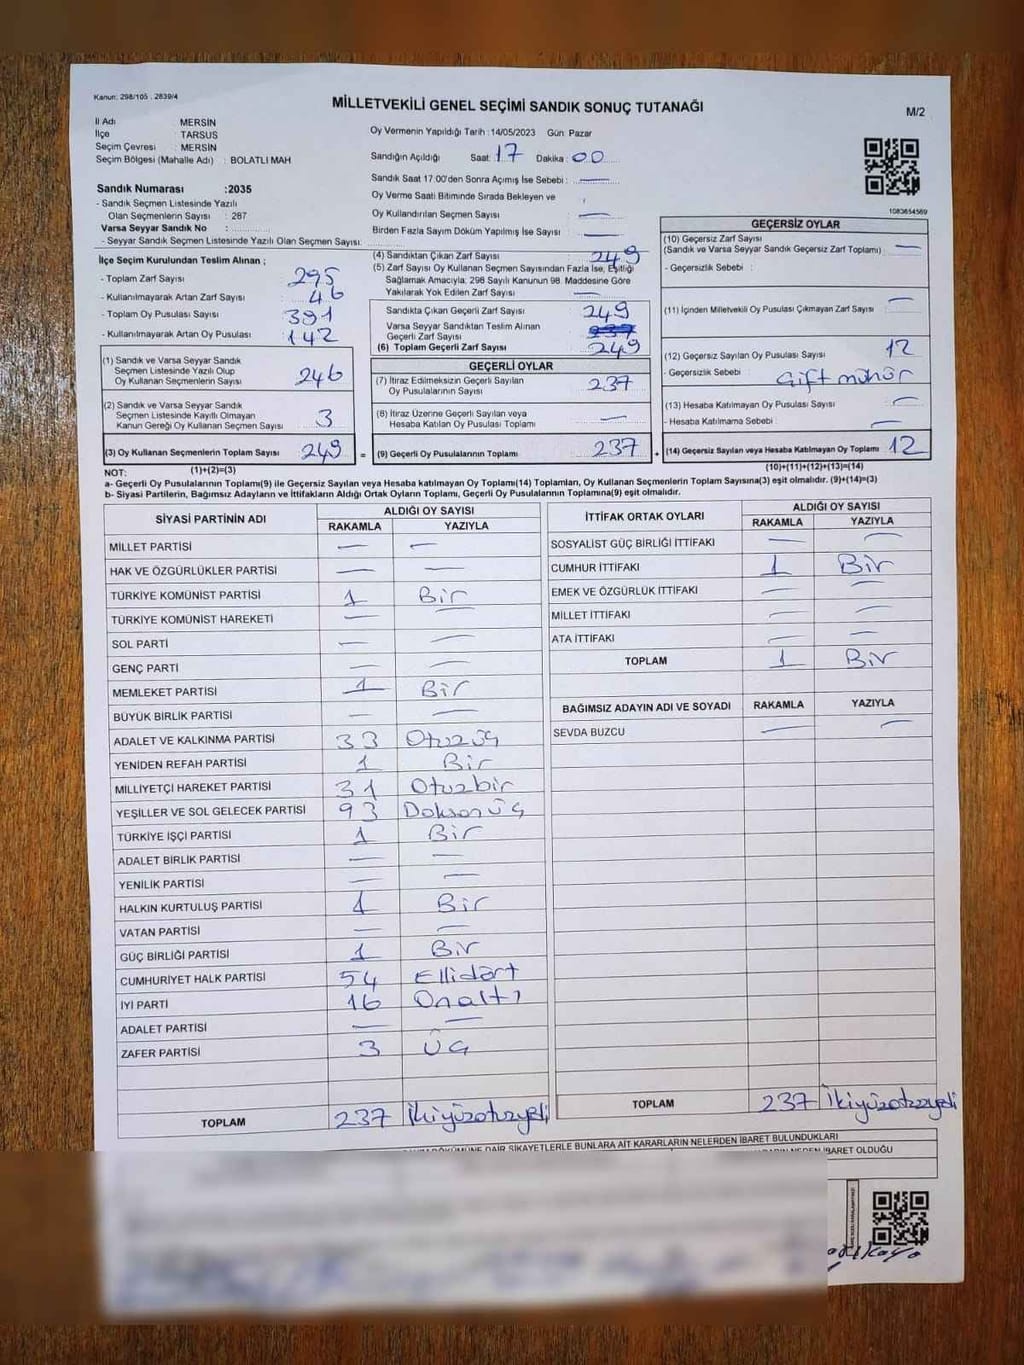 Kanun: 298/105 , 2839/4
MİLLETVEKİLİ GENEL SEÇİMİ SANDIK SONUÇ TUTANAĞI
M/2
İl Adı MERSİN
İlçe TARSUS
Seçim Çevresi : MERSİN
Seçim Bölgesi (Mahalle Adı) : BOLATLI MAH
Sandık Numarası :2035
- Sandık Seçmen Listesinde Yazılı
Olan Seçmenlerin Sayısı : 287
Varsa Seyyar Sandık No :
- Seyyar Sandık Seçmen Listesinde Yazılı Olan Seçmen Sayısı:
Oy Vermenin Yapıldığı Tarih :14/05/2023 Gün: Pazar
Sandığın Açıldığı Saat: 17 Dakika: 00
Sandık Saat 17:00'den Sonra Açılmış İse Sebebi : —
Oy Verme Saati Bitiminde Sırada Bekleyen ve
Oy Kullandırılan Seçmen Sayısı : —
Birden Fazla Sayım Döküm Yapılmış İse Sayısı : —
1083654569
İlçe Seçim Kurulundan Teslim Alınan ;
- Toplam Zarf Sayısı : 295
- Kullanılmayarak Artan Zarf Sayısı : 46
- Toplam Oy Pusulası Sayısı : 391
- Kullanılmayarak Artan Oy Pusulası : 142
(1) Sandık ve Varsa Seyyar Sandık
Seçmen Listesinde Yazılı Olup
Oy Kullanan Seçmenlerin Sayısı : 246
(2) Sandık ve Varsa Seyyar Sandık
Seçmen Listesinde Kayıtlı Olmayan
Kanun Gereği Oy Kullanan Seçmen Sayısı : 3
(3) Oy Kullanan Seçmenlerin Toplam Sayısı : 249 =
(1)+(2)=(3)
(4) Sandıktan Çıkan Zarf Sayısı : 249
(5) Zarf Sayısı Oy Kullanan Seçmen Sayısından Fazla İse, Eşitliği
Sağlamak Amacıyla; 298 Sayılı Kanunun 98. Maddesine Göre
Yakılarak Yok Edilen Zarf Sayısı : —
Sandıkta Çıkan Geçerli Zarf Sayısı : 249
Varsa Seyyar Sandıktan Teslim Alınan
Geçerli Zarf Sayısı :
(6) Toplam Geçerli Zarf Sayısı : 249
GEÇERLİ OYLAR
(7) İtiraz Edilmeksizin Geçerli Sayılan
Oy Pusulalarının Sayısı : 237
(8) İtiraz Üzerine Geçerli Sayılan veya
Hesaba Katılan Oy Pusulası Toplamı : —
(9) Geçerli Oy Pusulalarının Toplamı : 237 +
GEÇERSİZ OYLAR
(10) Geçersiz Zarf Sayısı
(Sandık ve Varsa Seyyar Sandık Geçersiz Zarf Toplamı) : —
- Geçersizlik Sebebi :
(11) İçinden Milletvekili Oy Pusulası Çıkmayan Zarf Sayısı : —
(12) Geçersiz Sayılan Oy Pusulası Sayısı : 12
- Geçersizlik Sebebi : Çift mühür
(13) Hesaba Katılmayan Oy Pusulası Sayısı : —
- Hesaba Katılmama Sebebi : —
(14) Geçersiz Sayılan veya Hesaba Katılmayan Oy Toplamı : 12
(10)+(11)+(12)+(13)=(14)
NOT:
a- Geçerli Oy Pusulalarının Toplamı(9) ile Geçersiz Sayılan veya Hesaba Katılmayan Oy Toplamı(14) Toplamları, Oy Kullanan Seçmenlerin Toplam Sayısına(3) eşit olmalıdır. (9)+(14)=(3)
b- Siyasi Partilerin, Bağımsız Adayların ve İttifakların Aldığı Ortak Oyların Toplamı, Geçerli Oy Pusulalarının Toplamına(9) eşit olmalıdır.
SİYASİ PARTİNİN ADI ALDIĞI OY SAYISI
RAKAMLA YAZIYLA
MİLLET PARTİSİ — —
HAK VE ÖZGÜRLÜKLER PARTİSİ — —
TÜRKİYE KOMÜNİST PARTİSİ 1 Bir
TÜRKİYE KOMÜNİST HAREKETİ — —
SOL PARTİ — —
GENÇ PARTİ — —
MEMLEKET PARTİSİ 1 Bir
BÜYÜK BİRLİK PARTİSİ — —
ADALET VE KALKINMA PARTİSİ 33 Otuzüç
YENİDEN REFAH PARTİSİ 1 Bir
MİLLİYETÇİ HAREKET PARTİSİ 31 Otuzbir
YEŞİLLER VE SOL GELECEK PARTİSİ 93 Doksanüç
TÜRKİYE İŞÇİ PARTİSİ 1 Bir
ADALET BİRLİK PARTİSİ — —
YENİLİK PARTİSİ — —
HALKIN KURTULUŞ PARTİSİ 1 Bir
VATAN PARTİSİ — —
GÜÇ BİRLİĞİ PARTİSİ 1 Bir
CUMHURİYET HALK PARTİSİ 54 Ellidört
İYİ PARTİ 16 Onaltı
ADALET PARTİSİ — —
ZAFER PARTİSİ 3 Üç
TOPLAM 237 İkiyüzotuzyedi
İTTİFAK ORTAK OYLARI ALDIĞI OY SAYISI
RAKAMLA YAZIYLA
SOSYALİST GÜÇ BİRLİĞİ İTTİFAKI — —
CUMHUR İTTİFAKI 1 Bir
EMEK VE ÖZGÜRLÜK İTTİFAKI — —
MİLLET İTTİFAKI — —
ATA İTTİFAKI — —
TOPLAM 1 Bir
BAĞIMSIZ ADAYIN ADI VE SOYADI RAKAMLA YAZIYLA
SEVDA BUZCU — —
TOPLAM 237 İkiyüzotuzyedi
DAİR ŞİKAYETLERLE BUNLARA AİT KARARLARIN NELERDEN İBARET BULUNDUKLARI
İBARET OLDUĞU